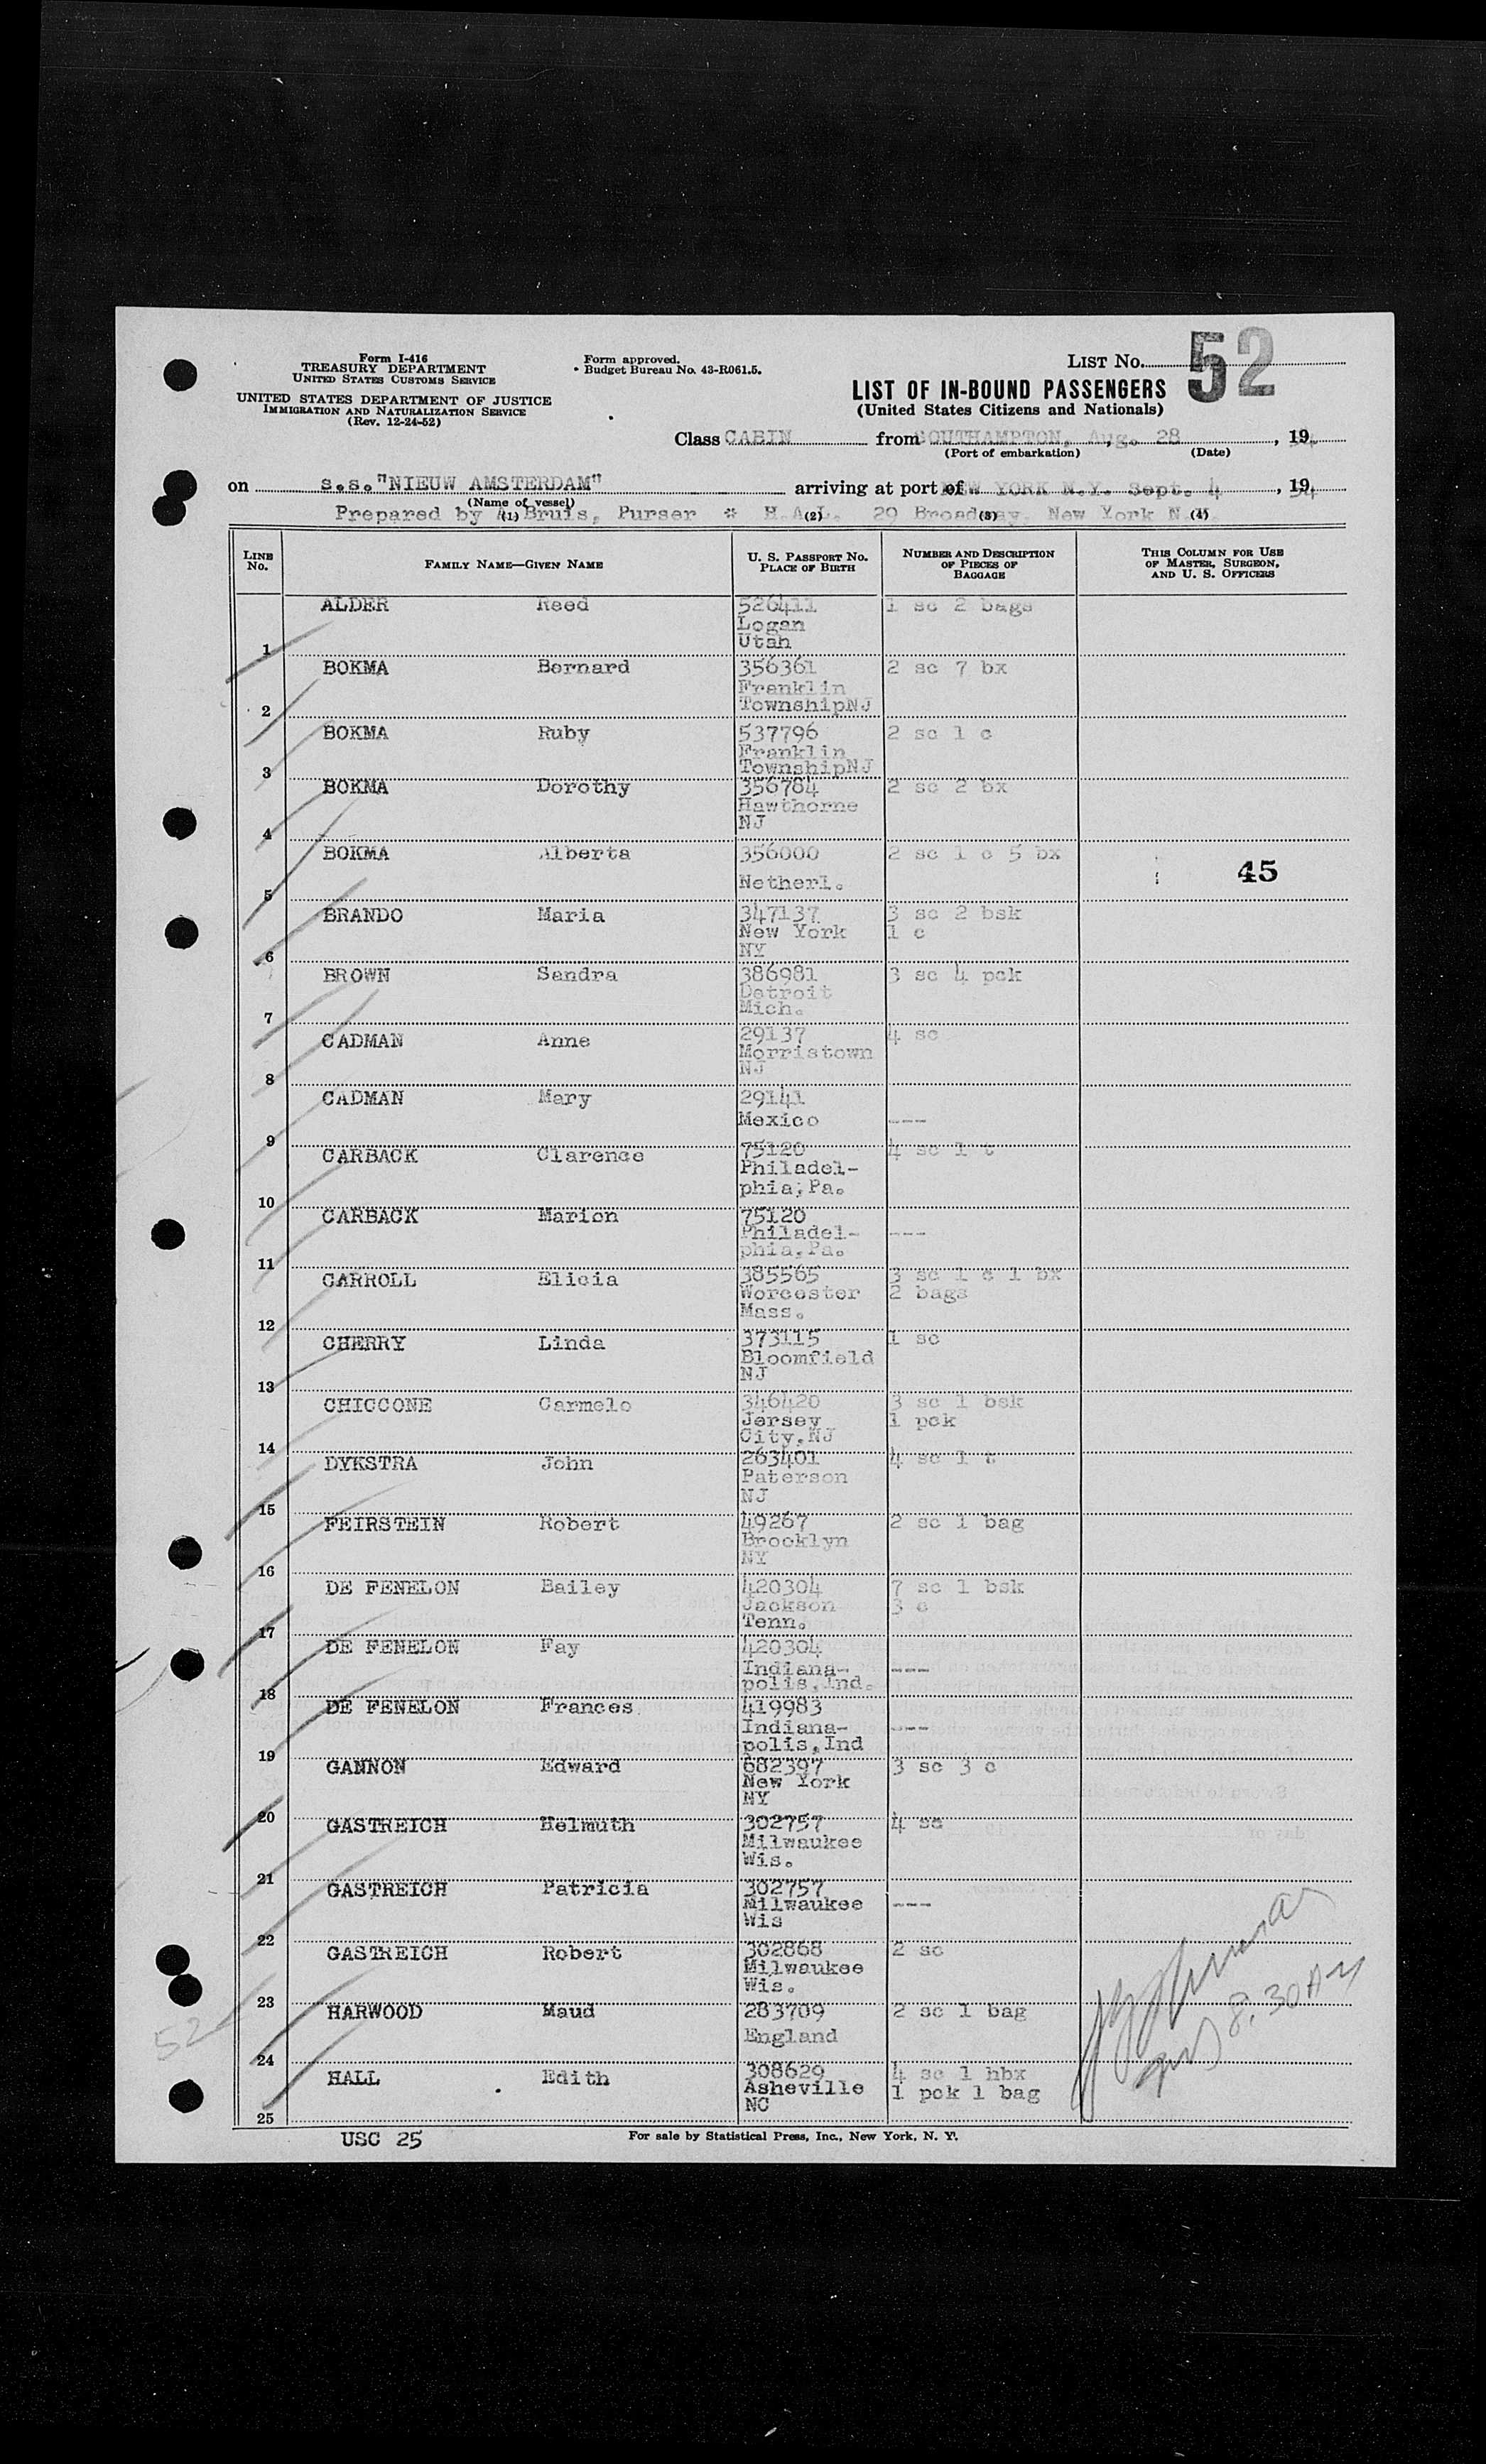 Form I-416
TREASURY DEPARTMENT
UNITED STATES CUSTOMS SERVICE
UNITED STATES DEPARTMENT OF JUSTICE
IMMIGRATION AND NATURALIZATION SERVICE
(Rev. 12-24-52)
Form approved.
Budget Bureau No. 43-R061.5.
LIST No. 52
LIST OF IN-BOUND PASSENGERS
(United States Citizens and Nationals)
Class CABIN from SOUTHAMPTON, Aug. 28, 19
(Port of embarkation) (Date)
on s.s."NIEUW AMSTERDAM" arriving at port of NEW YORK N.Y. Sept. 4, 1954
(Name of vessel)
Prepared by A. Bruis, Purser * H.A.L. 29 Broadway, New York N.Y.
(1) (2) (3) (4)
LINE No. FAMILY NAME—GIVEN NAME U. S. PASSPORT NO. PLACE OF BIRTH NUMBER AND DESCRIPTION OF PIECES OF BAGGAGE THIS COLUMN FOR USE OF MASTER, SURGEON, AND U. S. OFFICERS
ALDER Reed 526411 1 sc 2 bags
Logan
1 Utah
BOKMA Bernard 356361 2 sc 7 bx
Franklin
2 TownshipNJ
BOKMA Ruby 537796 2 sc 1 c
Franklin
3 TownshipNJ
BOKMA Dorothy 356784 2 sc 2 bx
Hawthorne
4 NJ
BOKMA Alberta 356000 2 sc 1 c 5 bx
45
5 Netherl.
BRANDO Maria 347137 3 sc 2 bsk
New York 1 c
6 NY
BROWN Sandra 386981 3 sc 4 pck
Detroit
7 Mich.
CADMAN Anne 29137 4 sc
Morristown
8 NJ
CADMAN Mary 29141
9 Mexico ---
CARBACK Clarence 75120 4 sc 1 t
Philadel-
10 phia,Pa.
CARBACK Marion 75120
Philadel- ---
11 phia,Pa.
CARROLL Elicia 385565 3 sc 1 c 1 bx
Worcester 2 bags
12 Mass.
CHERRY Linda 373115 1 sc
Bloomfield
13 NJ
CHICCONE Carmelo 346420 3 sc 1 bsk
Jersey 1 pck
14 City,NJ
DYKSTRA John 263401 4 sc 1 t
Paterson
15 NJ
FEIRSTEIN Robert 49267 2 sc 1 bag
Brooklyn
16 NY
DE FENELON Bailey 420304 7 sc 1 bsk
Jackson 3 c
17 Tenn.
DE FENELON Fay 420304
Indiana- ---
18 polis,Ind.
DE FENELON Frances 419983
Indiana- ---
19 polis,Ind
GANNON Edward 682397 3 sc 3 c
New York
20 NY
GASTREICH Helmuth 302757 4 sc
Milwaukee
21 Wis.
GASTREICH Patricia 302757
Milwaukee ---
22 Wis
GASTREICH Robert 302868 2 sc
Milwaukee
23 Wis.
HARWOOD Maud 283709 2 sc 1 bag
24 England
HALL Edith 308629 4 sc 1 hbx
Asheville 1 pck 1 bag
25 NC
8.30AM
52
USC 25
For sale by Statistical Press, Inc., New York, N. Y.